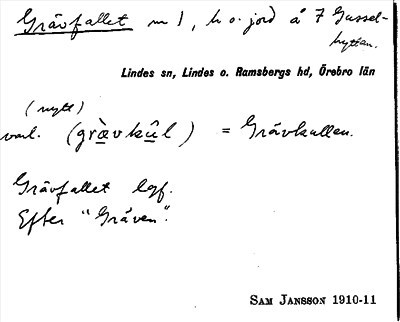 Grävfallet m 1, h o. jord å 7 Gussel-
hyttan.
Lindes sn, Lindes o. Ramsbergs hd, Örebro län
(nytt)
varl. (grävkûl) = Grävkullen.
Grävfallet lgf.
Efter "Gräven".
SAM JANSSON 1910-11